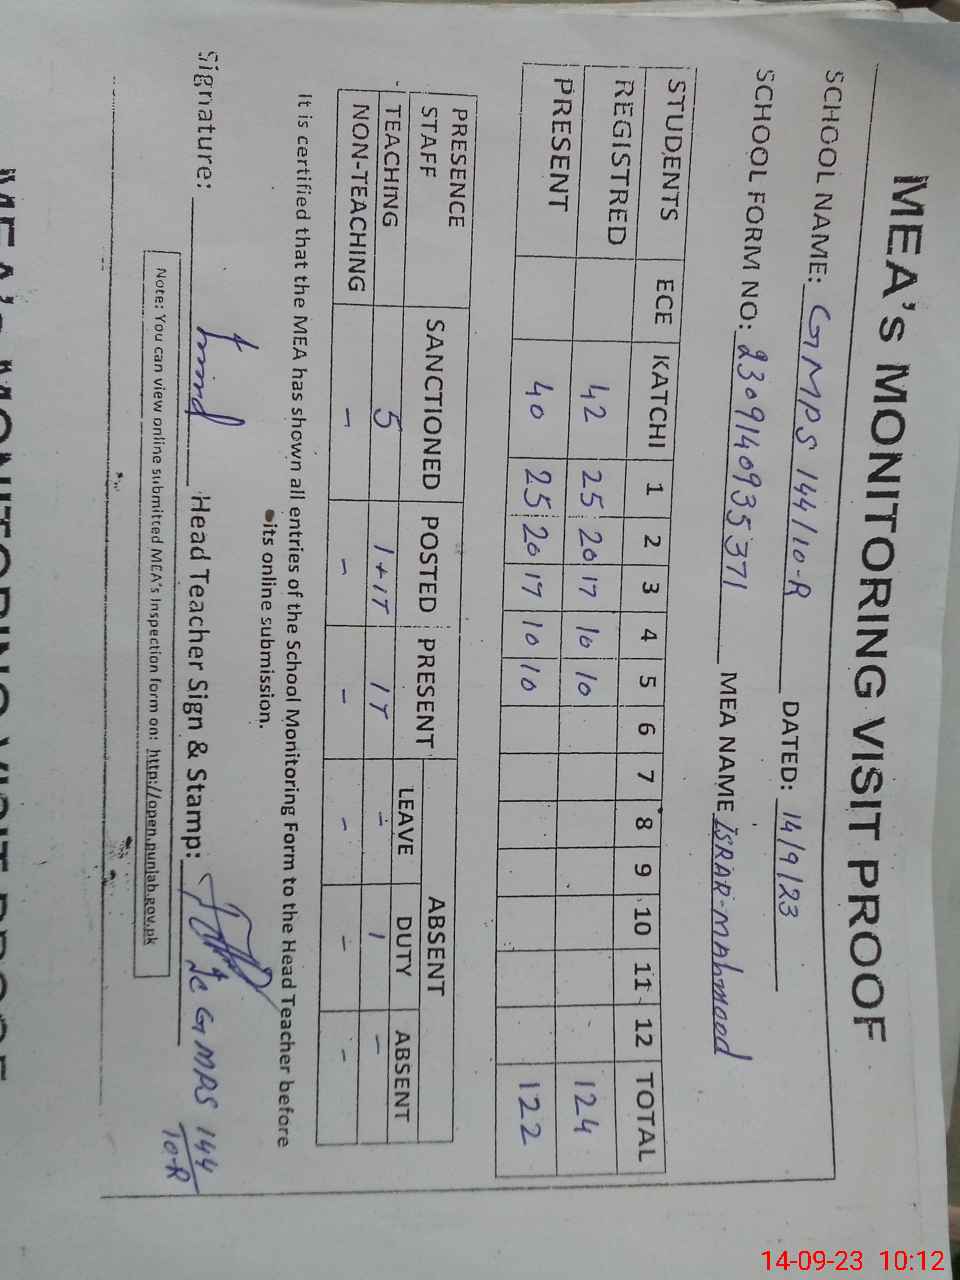 MEA's MONITORING VISIT PROOF
SCHOOL NAME: GMPS 144/10-R DATED: 14/9/23
SCHOOL FORM NO: 2309140935371 MEA NAME ISRAR-MAhmood
STUDENTS ECE KATCHI 1 2 3 4 5 6 7 8 9 10 11 12 TOTAL
REGISTRED 42 25 20 17 10 10 124
PRESENT 40 25 20 17 10 10 122
PRESENCE STAFF SANCTIONED POSTED PRESENT ABSENT
LEAVE DUTY ABSENT
TEACHING 5 1+1T 1T - 1 -
NON-TEACHING - - - - - -
It is certified that the MEA has shown all entries of the School Monitoring Form to the Head Teacher before
its online submission.
Signature: Head Teacher Sign & Stamp:
GMPS 144/10-R
Note: You can view online submitted MEA's Inspection form on: http://open.punjab.gov.pk
14-09-23 10:12